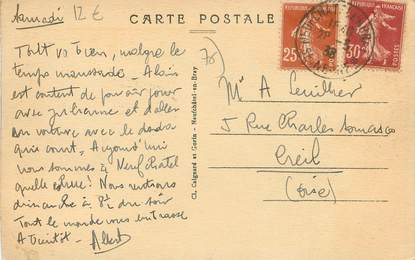 Samedi 12 €
CARTE POSTALE
Tout va bien, malgré le
temps maussade - Alain
est content de pouvoir jouer
avec Julienne et d'aller
en voiture avec le dada
qui court. Aujourd'hui
nous sommes à Neufchatel
quelle ! Nous rentrons
dimanche à 8h du soir
Tout le monde vous embrasse
A bientôt - Albert
76
Cl. Caignard et Gorin - Neufchâtel-en-Bray
RÉPUBLIQUE FRANÇAISE
25
RÉPUBLIQUE FRANÇAISE
30
Mr A
5 Rue Charles
Creil
(Oise)